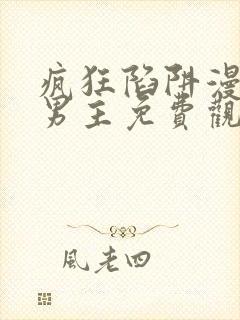 疯狂陷阱漫
男主免費觀
風老四